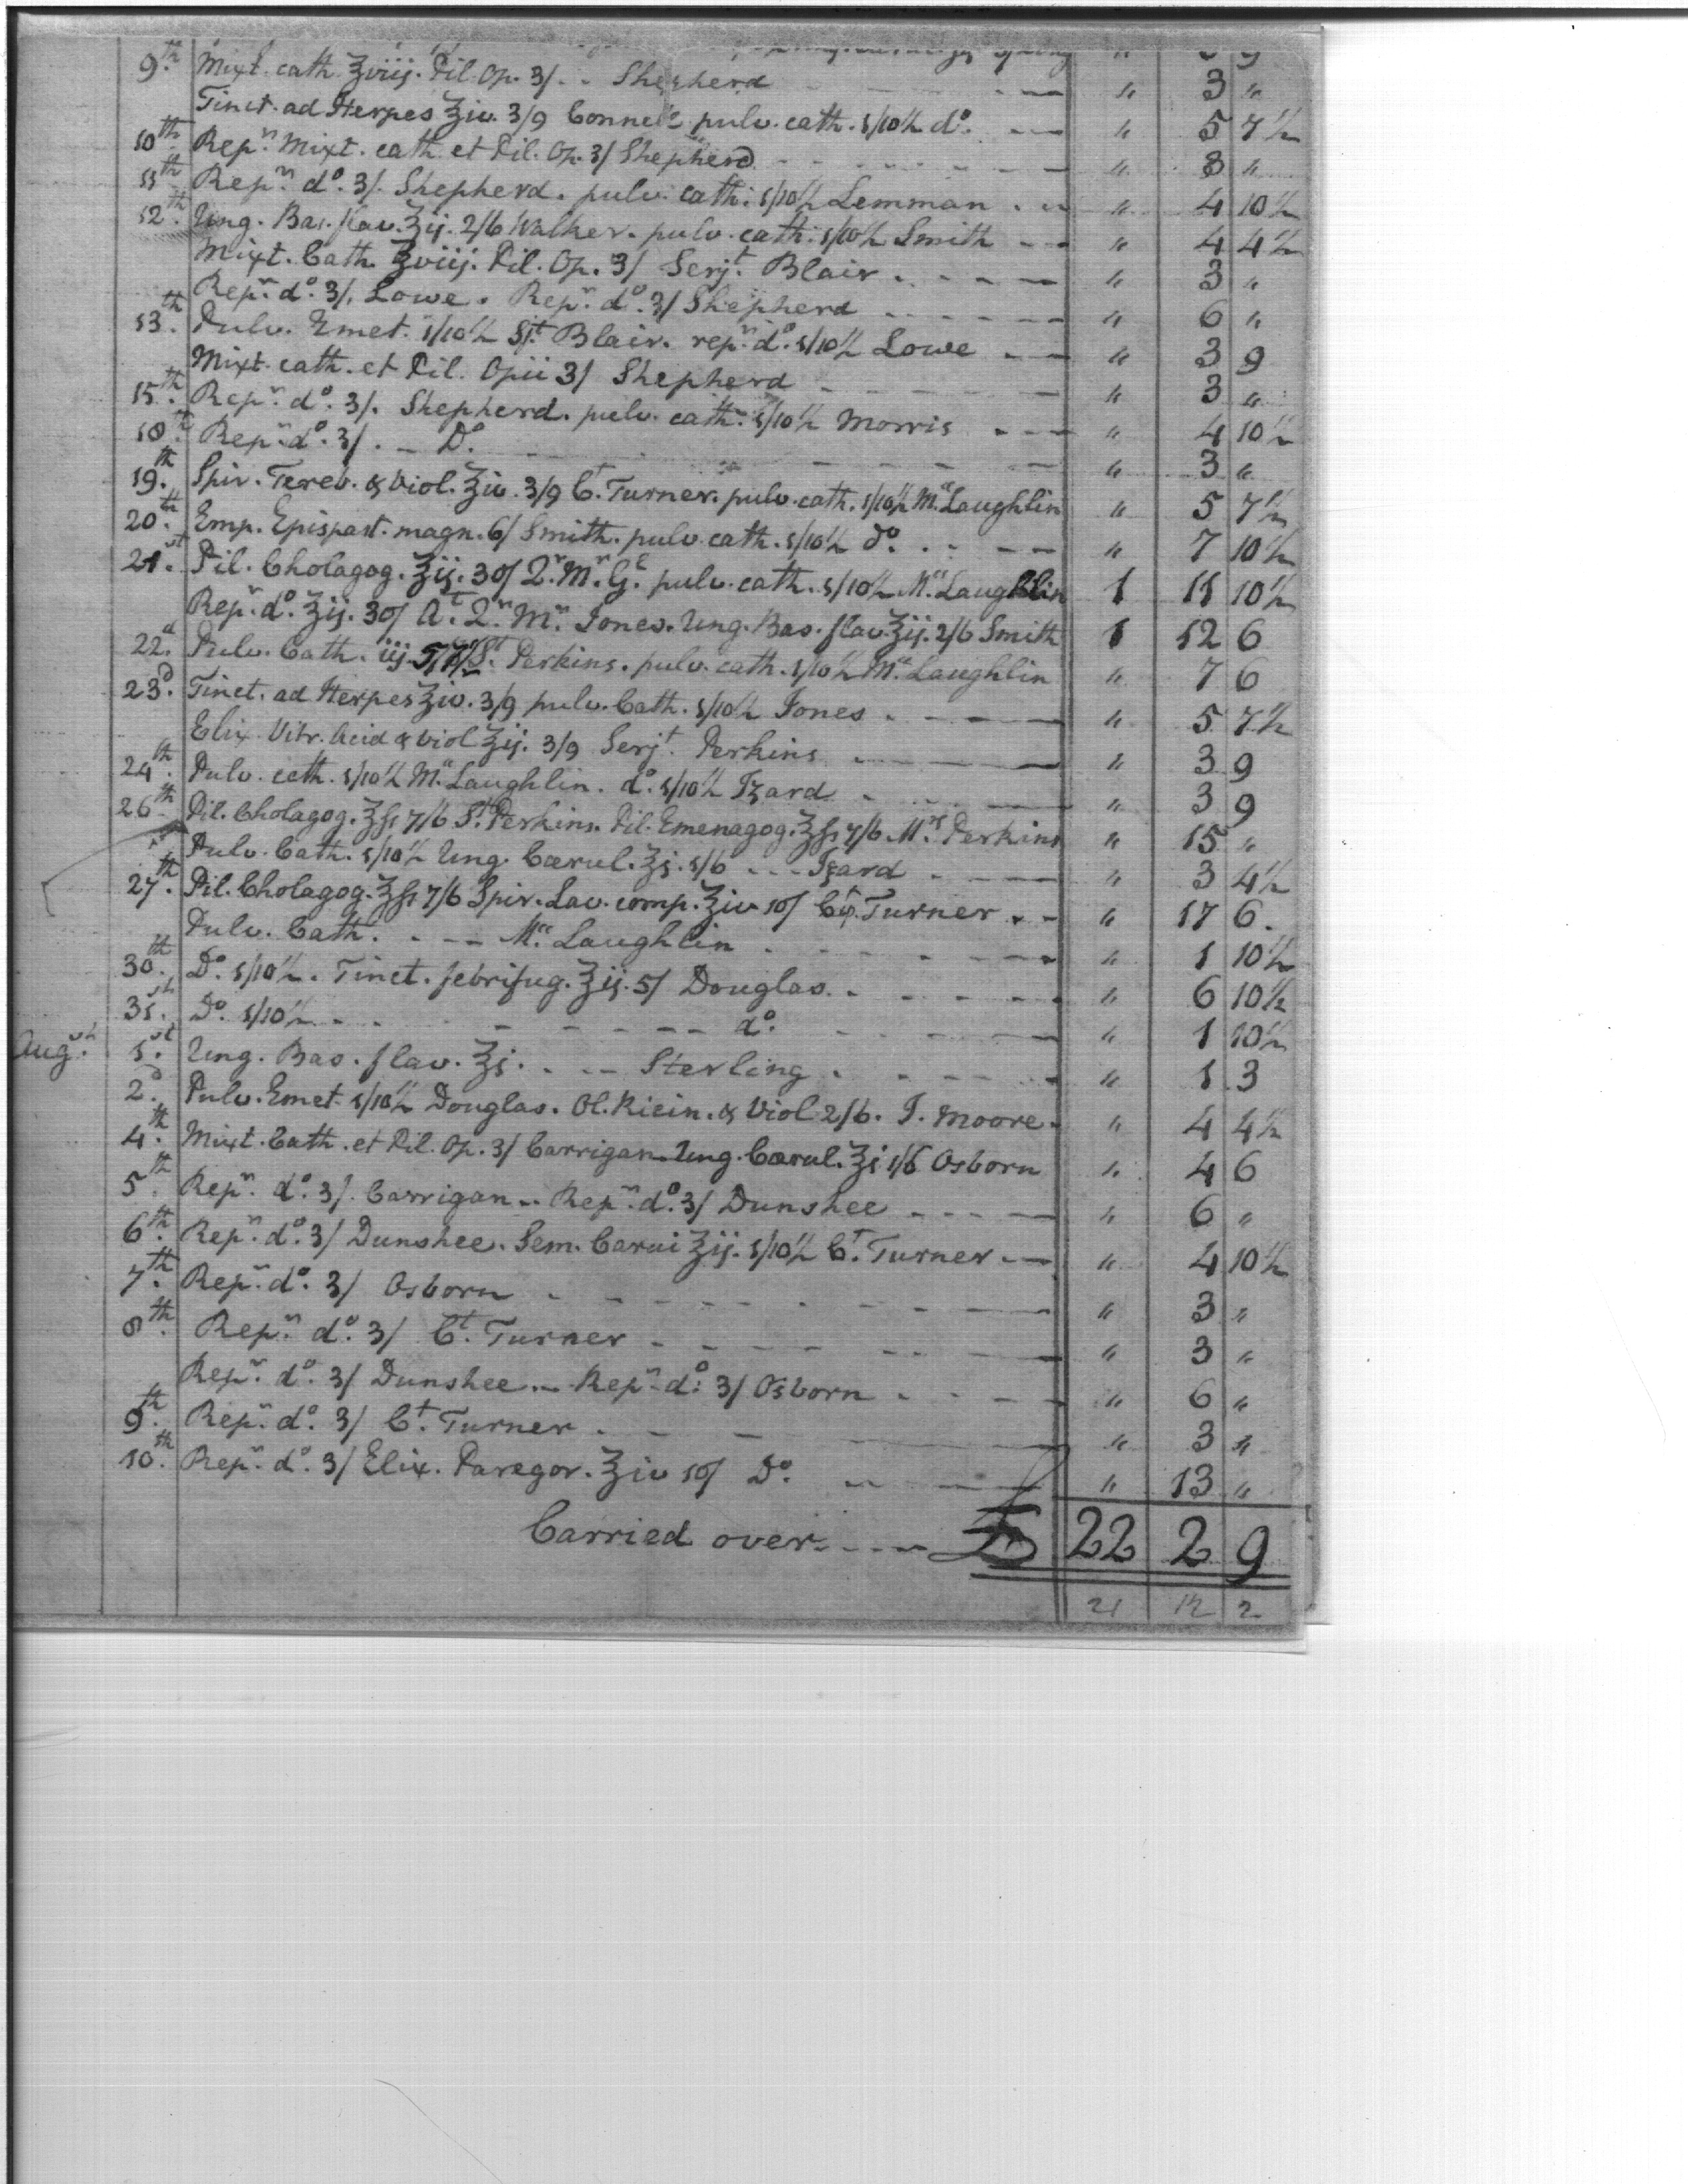 " " 9
9th. Mixt. cath. ℥viij. Pil. Op. 3/ - - Shepherd - - - " 3 "
Tinct. ad Herpes ℥iv. 3/9 Connell pulv. cath. 1/10½ do. - - - " 5 7½
10th Repn. Mixt. cath. et Pil. Op. 3/ Shepherd - - - " 3 "
11th Repn. do. 3/. Shepherd. pulv. cath. 1/10½ Lemman - - " 4 10½
12th. Ung. Bas. flav. ℥ij. 2/6 Walker. pulv. cath. 1/10½ Smith - - - " 4 4½
Mixt. Cath. ℥viij. Pil. Op. 3/ Serjt. Blair - - - " 3 "
Repn. do. 3/. Lowe. Repn. do 3/ Shepherd - - - " 6 "
13th. Pulv. Emet. 1/10½ St. Blair. repn. do. 1/10½ Lowe - - - " 3 9
Mixt. cath. et Pil. Opii 3/ Shepherd - - - " 3 "
15th. Repn. do. 3/. Shepherd. pulv. cath. 1/10½ Morris - - - " 4 10½
18th. Repn. do. 3/. - Do. - - - " 3 "
19th. Spir. Tereb. & Viol. ℥iv. 3/9 Ct. Turner. pulv. cath. 1/10½ Mc. Laughlin " 5 7½
20th. Emp. Epispast. magn. 6/ Smith. pulv. cath. 1/10½ do. - - - " 7 10½
21st. Pil. Cholagog. ℥ij. 30/ Qr. Mr. Gl. pulv. cath. 1/10½ Mc. Laughlin 1 11 10½
Repn. do. ℥ij. 30/ At. Qr. Mr. Jones. Ung. Bas. flav. ℥ij. 2/6 Smith 1 12 6
22d. Pulv. Cath. iij. St. Perkins. pulv. cath. 1/10½ Mc. Laughlin " 7 6
23d. Tinct. ad Herpes ℥iv. 3/9 pulv. Cath. 1/10½ Jones - - - " 5 7½
Elix. Vitr. Acid & Viol ℥ij. 3/9 Serjt. Perkins - - - " 3 9
24th. Pulv. cath. 1/10½ Mc. Laughlin. do. 1/10½ Izard - - - " 3 9
26th. Pil. Cholagog. ℥fs 7/6 St. Perkins. Pil. Emenagog. ℥fs 7/6 Mrs. Perkins " 15 "
Pulv. Cath. 1/10½ Ung. Cærul. ℥j. 1/6 - - - Izard - - - " 3 4½
27th. Pil. Cholagog. ℥fs 7/6 Spir. Lav. comp. ℥iv 10/ Ct. Turner - - " 17 6.
Pulv. Cath. - - - Mc. Laughlin - - - " 1 10½
30th. Do. 1/10½. Tinct. febrifug. ℥ij. 5/ Douglas - - - " 6 10½
31st. Do. 1/10½ - - - do. - - - " 1 10½
Augst. 1st. Ung. Bas. flav. ℥j. - - - Sterling - - - " 1 3
2d. Pulv. Emet. 1/10½ Douglas. Ol. Ricin. & Viol 2/6. J. Moore. " 4 4½
4th. Mixt. Cath. et Pil. Op. 3/ Carrigan. Ung. Cærul. ℥j 1/6 Osborn " 4 6
5th. Repn. do. 3/. Carrigan - - Repn. do. 3/ Dunshee - - - " 6 "
6th. Repn. do. 3/ Dunshee. Sem. Carui ℥ij. 1/10½ Ct. Turner - - " 4 10½
7th. Repn. do. 3/ Osborn - - - " 3 "
8th. Repn. do. 3/ Ct. Turner - - - " 3 "
Repn. do. 3/ Dunshee - - Repn. do. 3/ Osborn - - - " 6 "
9th. Repn. do. 3/ Ct. Turner - - - " 3 "
10th. Repn. do. 3/ Elix. Paregor. ℥iv 10/ Do. - - - " 13 "
Carried over - - - - £ 22 2 9
21 12 2